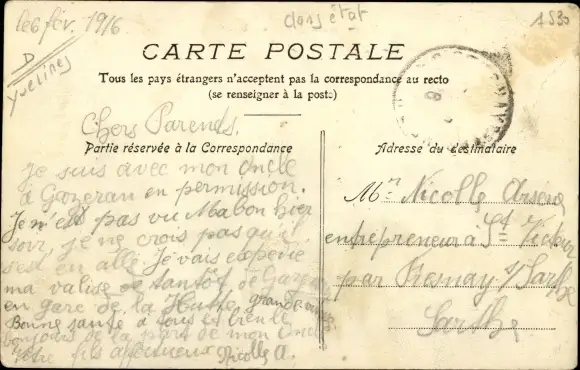 le 6 fév. 1916
dos état
1530
D
Yvelines
CARTE POSTALE
Tous les pays étrangers n'acceptent pas la correspondance au recto
(se renseigner à la poste)
Chers Parents.
Partie réservée à la Correspondance
Je suis avec mon Oncle
à Gazeran en permission.
Je n'est pas vu Mabon hier
soir, je ne crois pas qu'il
s'est en allé. Je vais
ma valise tantôt de
en gare de la Hutte
Bonne santé à tous
bonjours de la part de mon Oncle
fils affectueux Nicolle A.
Adresse du destinataire
Mr Nicolle Arsène
entrepreneur à St Victeur
par Fresnay s/ Sarthe
Sarthe